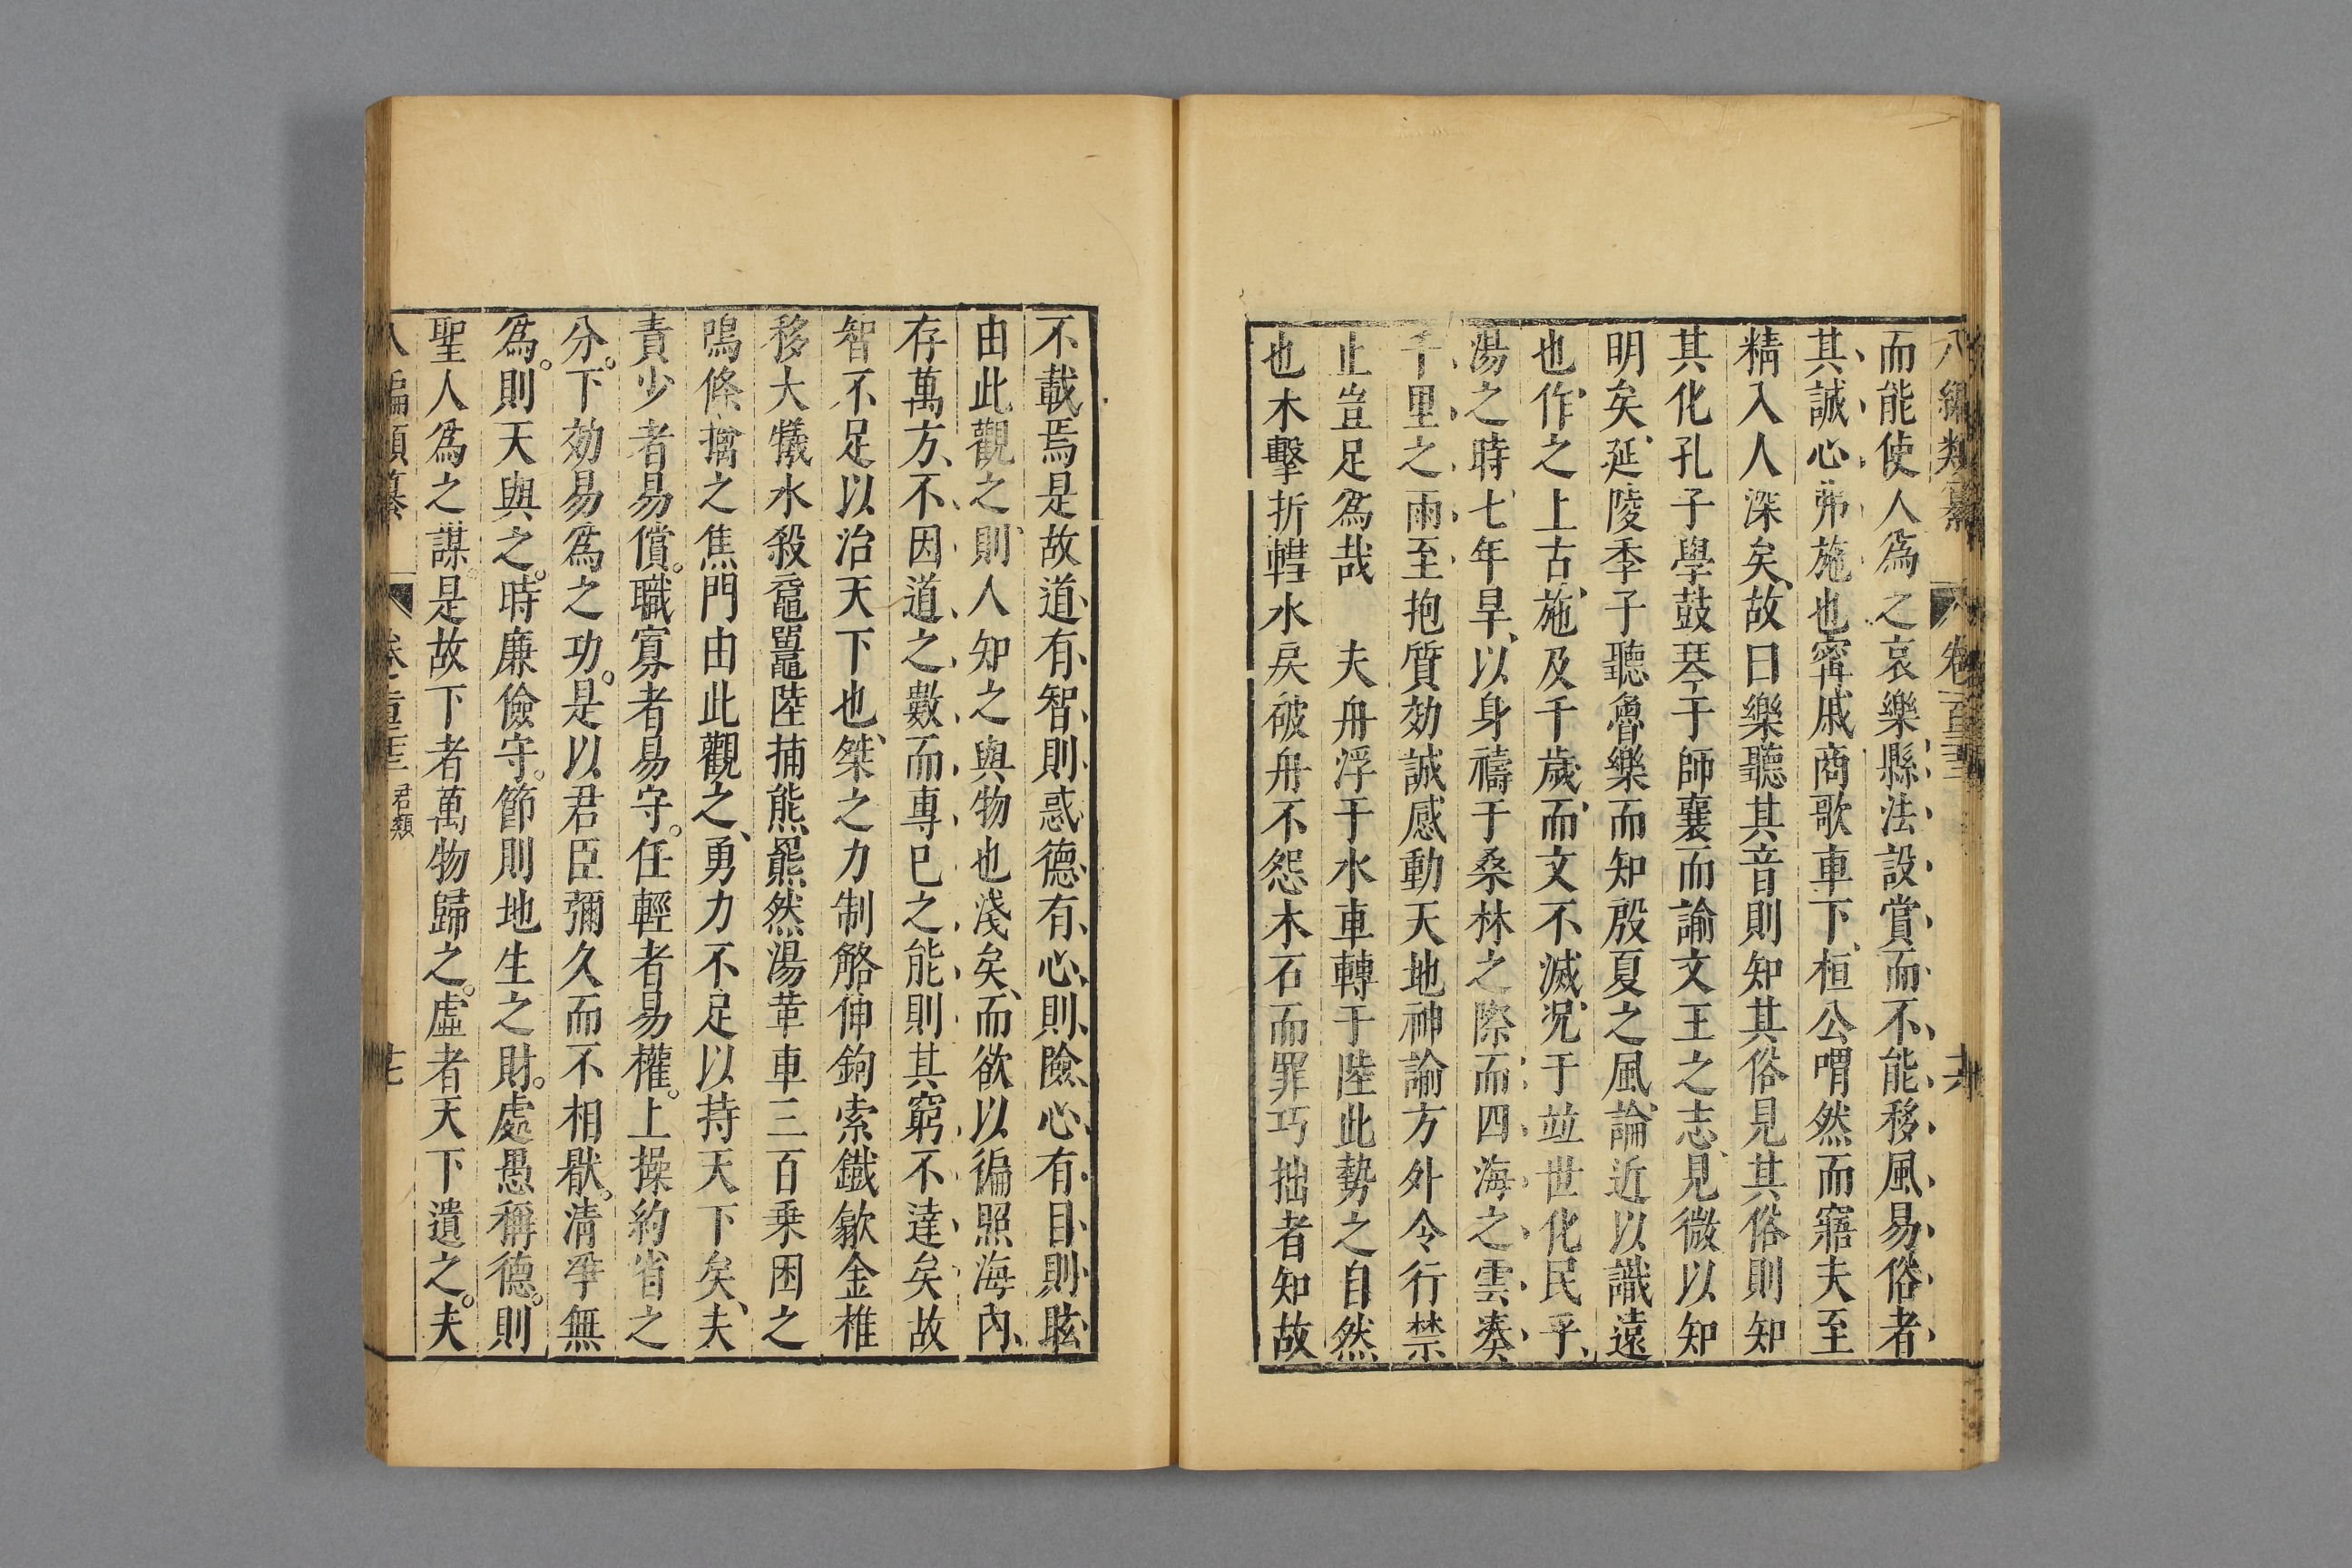 八編類纂 卷一百三 六
而能使人爲之哀樂縣法設賞而不能移風易俗者
其誠心弗施也甯戚商歌車下桓公喟然而寤夫至
精入人深矣故曰樂聽其音則知其俗見其俗則知
其化孔子學鼓琴于師襄而諭文王之志見微以知
明矣延陵季子聽魯樂而知殷夏之風論近以識遠
也作之上古施及千歲而文不滅况于並世化民乎
湯之時七年旱以身禱于桑林之際而四海之雲湊
千里之雨至抱質効誠感動天地神諭方外令行禁
止豈足爲哉 夫舟浮于水車轉于陸此勢之自然
也木擊折轊水戾破舟不怨木石而罪巧拙者知故
不載焉是故道有智則惑德有心則險心有目則眩
由此觀之則人知之與物也淺矣而欲以徧照海內
存萬方不因道之數而專己之能則其窮不達矣故
智不足以治天下也桀之力制觡伸鉤索鐵歙金椎
移大犧水殺黿鼉陸捕熊羆然湯革車三百乗困之
鳴條擒之焦門由此觀之勇力不足以持天下矣夫
責少者易償職寡者易守任輕者易權上操約省之
分下効易爲之功是以君臣彌久而不相厭清爭無
爲則天與之時廉儉守節則地生之財處愚稱德則
聖人爲之謀是故下者萬物歸之虛者天下遺之夫
八編類纂 君類